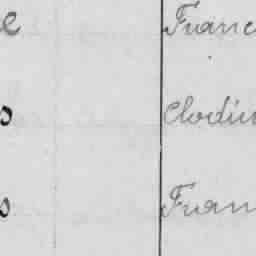 e Franc
s Clodi
s Fran